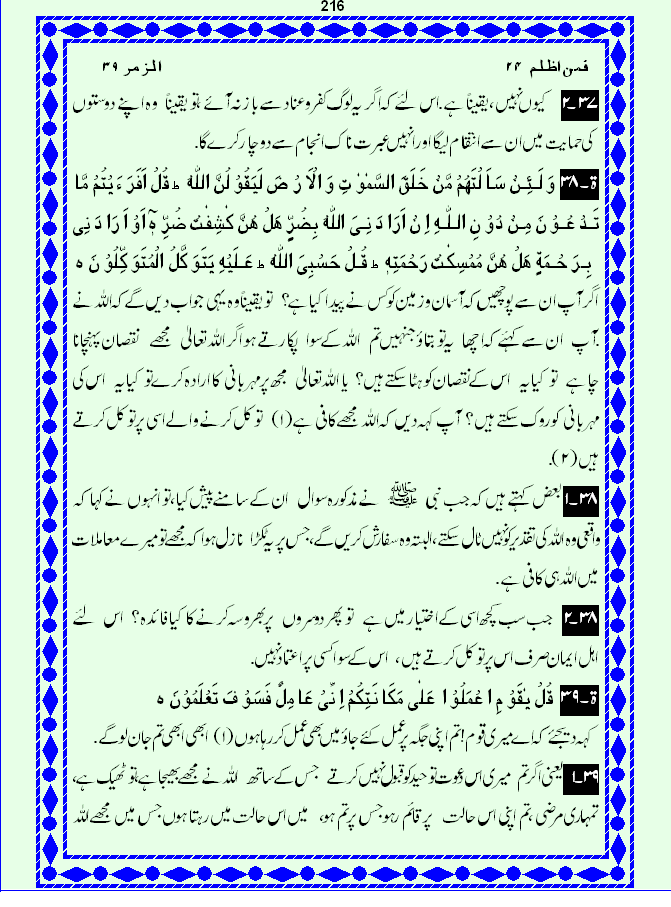 216
فمن اظلم ۲۴ الزمر ۳۹
۳۷۔۲ کیوں نہیں، یقیناً ہے۔ اس لئے کہ اگر یہ لوگ کفر و عناد سے باز نہ آئے، تو یقیناً وہ اپنے دوستوں
کی حمایت میں ان سے انتقام لیگا اور انہیں عبرت ناک انجام سے دوچار کرے گا۔
ۃ۔۳۸ وَ لَـئِـنْ سَاَ لْتَهُمْ مَّنْ خَلَقَ السَّمٰوٰ تِ وَ الْاَ رْ ضَ لَيَقُوْ لُنَّ اللّٰهُ ط قُلْ اَفَرَ ءَ يْتُمْ مَّا
تَـدْ عُـوْ نَ مِـنْ دُوْ نِ الـلّٰـهِ اِنْ اَرَا دَ نِـىَ اللّٰهُ بِضُرٍّ هَلْ هُنَّ كٰشِفٰتُ ضُرِّ هٖۤ اَوْ اَرَا دَ نِى
بِـرَ حْـمَةٍ هَلْ هُنَّ مُمْسِكٰتُ رَحْمَتِهٖ ط قُـلْ حَسْبِىَ اللّٰهُ ط عَـلَيْهِ يَتَوَ كَّلُ الْمُتَوَ كِّلُوْ نَ ہ
اگر آپ ان سے پوچھیں کہ آسمان و زمین کو کس نے پیدا کیا ہے؟ تو یقیناً وہ یہی جواب دیں گے کہ اللہ نے
۔آپ ان سے کہئے کہ اچھا یہ تو بتاؤ جنہیں تم اللہ کے سوا پکارتے ہو اگر اللہ تعالیٰ مجھے نقصان پہنچانا
چاہے تو کیا یہ اس کے نقصان کو ہٹا سکتے ہیں؟ یا اللہ تعالیٰ مجھ پر مہربانی کا ارادہ کرے تو کیا یہ اس کی
مہربانی کو روک سکتے ہیں؟ آپ کہہ دیں کہ اللہ مجھے کافی ہے(۱) تو کل کرنے والے اسی پر تو کل کرتے
ہیں(۲)۔
۳۸۔۱ بعض کہتے ہیں کہ جب نبی ﷺ نے مذکورہ سوال ان کے سامنے پیش کیا، تو انہوں نے کہا کہ
واقعی وہ اللہ کی تقدیر کو نہیں ٹال سکتے، البتہ وہ سفارش کریں گے، جس پر یہ ٹکڑا نازل ہوا کہ مجھے تو میرے معاملات
میں اللہ ہی کافی ہے۔
۳۸۔۲ جب سب کچھ اسی کے اختیار میں ہے تو پھر دوسروں پر بھروسہ کرنے کا کیا فائدہ؟ اس لئے
اہل ایمان صرف اس پر تو کل کرتے ہیں، اس کے سوا کسی پر اعتماد نہیں۔
ۃ۔۳۹ قُلْ يٰقَوْ مِ ا عْمَلُوْ ا عَلٰى مَكَا نَتِكُمْ اِنِّىْ عَا مِلٌ فَسَوْ فَ تَعْلَمُوْ نَ ہ
کہہ دیجئے کہ اے میری قوم! تم اپنی جگہ پر عمل کئے جاؤ میں بھی عمل کر رہا ہوں(۱) ابھی ابھی تم جان لو گے۔
۳۹۔۱ یعنی اگر تم میری اس دعوت توحید کو قبول نہیں کرتے جس کے ساتھ اللہ نے مجھے بھیجا ہے، تو ٹھیک ہے،
تمہاری مرضی، تم اپنی اس حالت پر قائم رہو جس پر تم ہو، میں اس حالت میں رہتا ہوں جس میں مجھے اللہ